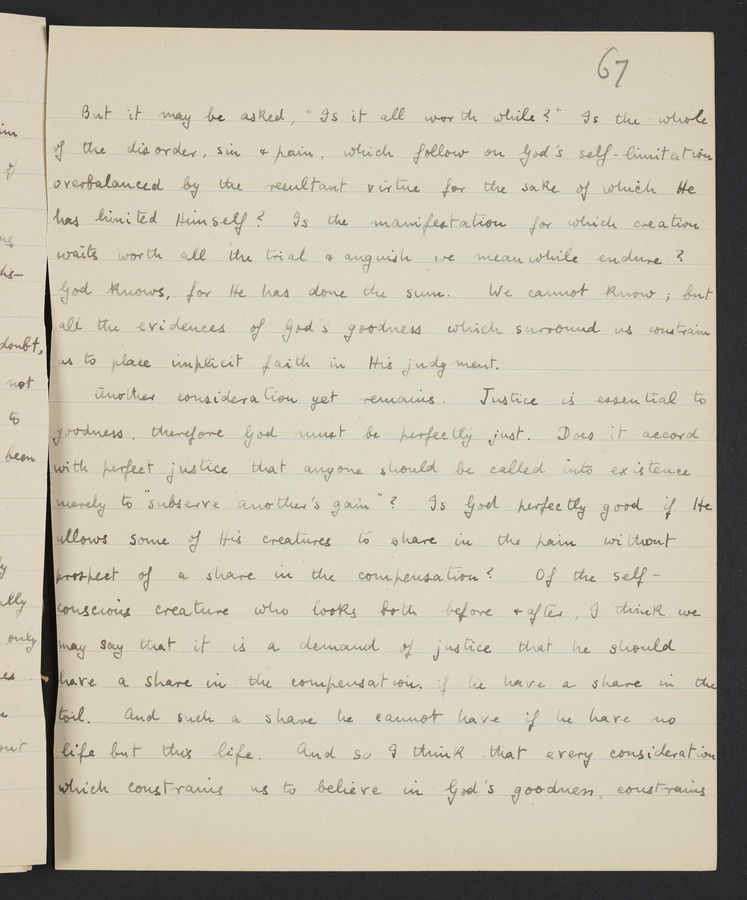 67
But it may be asked, "Is it all worth while?" Is the whole
of the disorder, sin & pain, which follow on God's self-limitation
overbalanced by the resultant virtue for the sake of which He
has limited Himself? Is the manifestation for which creation
waits worth all the trial & anguish we meanwhile endure?
God knows, for He has done the sum. We cannot know; but
all the evidences of God's goodness which surround us constrain
us to place implicit faith in His judgment.
Another consideration yet remains. Justice is essential to
goodness, therefore God must be perfectly just. Does it accord
with perfect justice that anyone should be called into existence
merely to "subserve another's gain"? Is God perfectly good if He
allows some of His creatures to share in the pain without
prospect of a share in the compensation? Of the self-
conscious creature who looks both before & after, I think we
may say that it is a demand of justice that he should
have a share in the compensation, if he have a share in the
toil. And such a share he cannot have if he have no
life but this life. And so I think that every consideration
which constrains us to believe in God's goodness, constrains